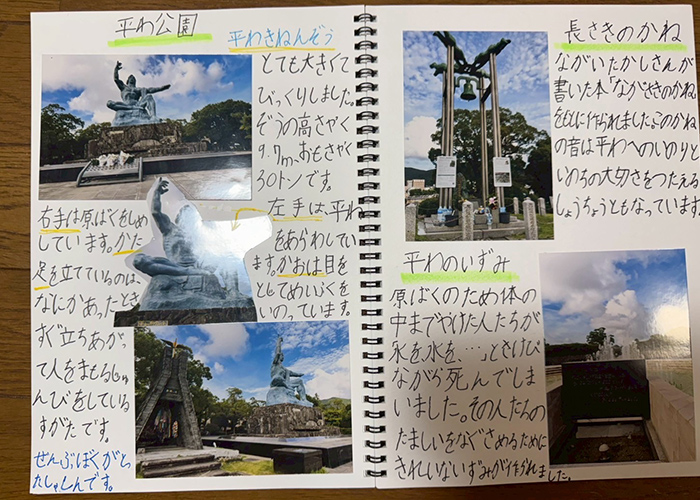 平わ公園
平わきねんぞう
とても大きくて
びっくりしました。
ぞうの高さやく
9.7m、おもさやく
30トンです。
右手は原ばくをしめ
しています。かた
足を立てているのは、
なにかあったとき
すぐ立ちあがっ
て人をまもるじゅ
んびをしている
すがたです。
左手は、平わ
をあらわしてい
ます。かおは目を
とじてめいふくを
いのっています。
ぜんぶぼくがと
たしゃしんです。
長さきのかね
ながいたかしさんが
書いた本「ながさきのかね
をもとに作られました。このかね
の音は平わへのいのりと
いのちの大切さをつたえる
しょうちょうともなっています
平わのいずみ
原ばくのため体の
中までやけた人たちが
水を水を…」とさけび
ながら死んでしま
いました。その人たちの
たましいをなぐさめるために
きれいないずみが作られました。